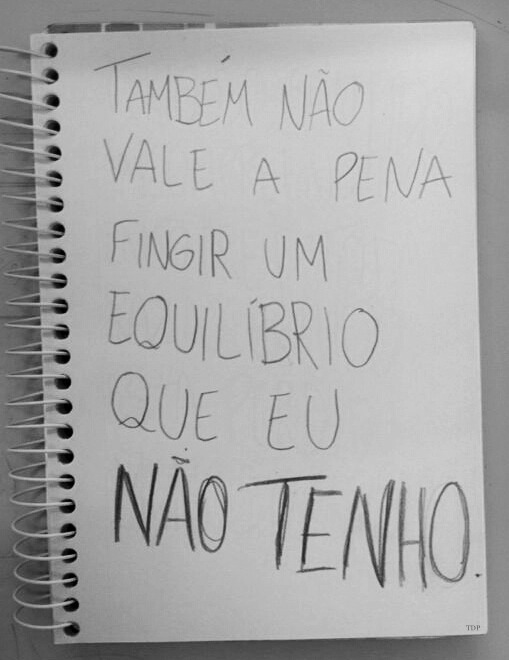 TAMBÉM NÃO
VALE A PENA
FINGIR UM
EQUILÍBRIO
QUE EU
NÃO TENHO.
TDP